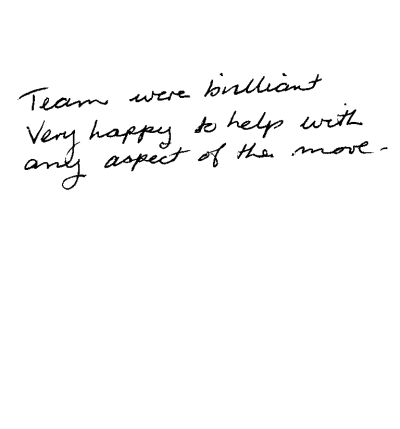 Team were brilliant
Very happy to help with
any aspect of the move.